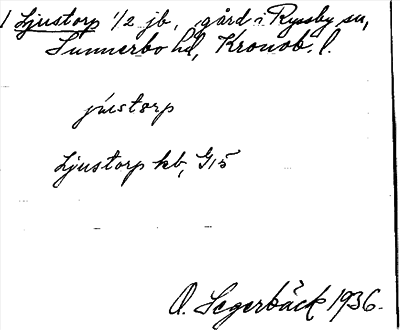 1 Ljustorp 1/2 jb, gård i Ryssby sn,
Sunnerbo hd, Kronob. l.
Ljustorp kb, G15
O. Segerbäck 1936.